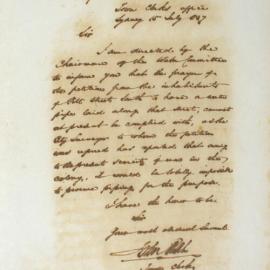 Town Clerks Office
Sydney 15 July
Sir
I am directed by the
Chairman of the Water Committee
to inform you that the prayer of
the petition from the inhabitants
of Pitt Street South to have a water
pipe laid along that street, cannot
at present be complied with, as the
City Surveyor to whom the petition
was referred has reported that owing
to the present scarcity of in the
colony, it would be totally impossible
to procure piping for the purpose.
I have the honor to be
Sir
Your most obedient Servant
Town Clerk